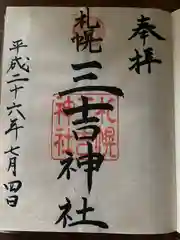 奉拝
札幌
三吉神社
札幌
神社
平成二十六年七月四日